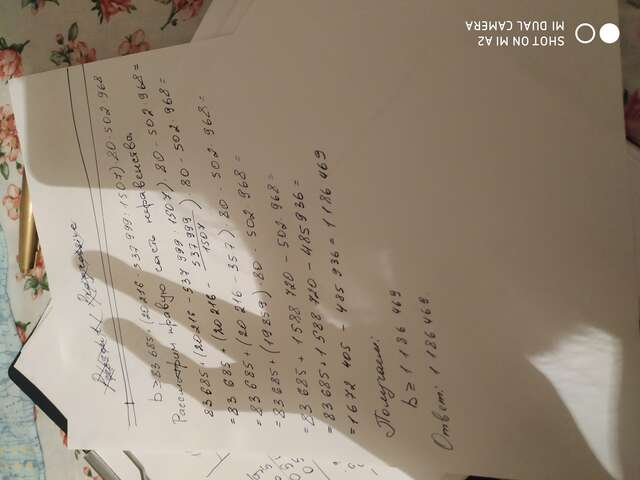 b > 83 685 + (20 216 - 537 999 : 1507) 80 - 502 968
Рассмотрим правую часть неравенства.
83 685 + (20 216 - 537 999 : 1507) 80 - 502 968 =
= 83 685 + (20 216 - 537 999 / 1507) . 80 - 502 968 =
= 83 685 + (20 216 - 357) 80 - 502 968 =
= 83 685 + (19859) 80 - 502 968 =
= 83 685 + 1 588 720 - 502 968 =
= 83 685 + 1 588 720 - 485 936 =
= 1 672 405 - 485 936 = 1 186 469
Получаем:
b > 1 186 469
Ответ: 1 186 468
SHOT ON MI A2
MI DUAL CAMERA